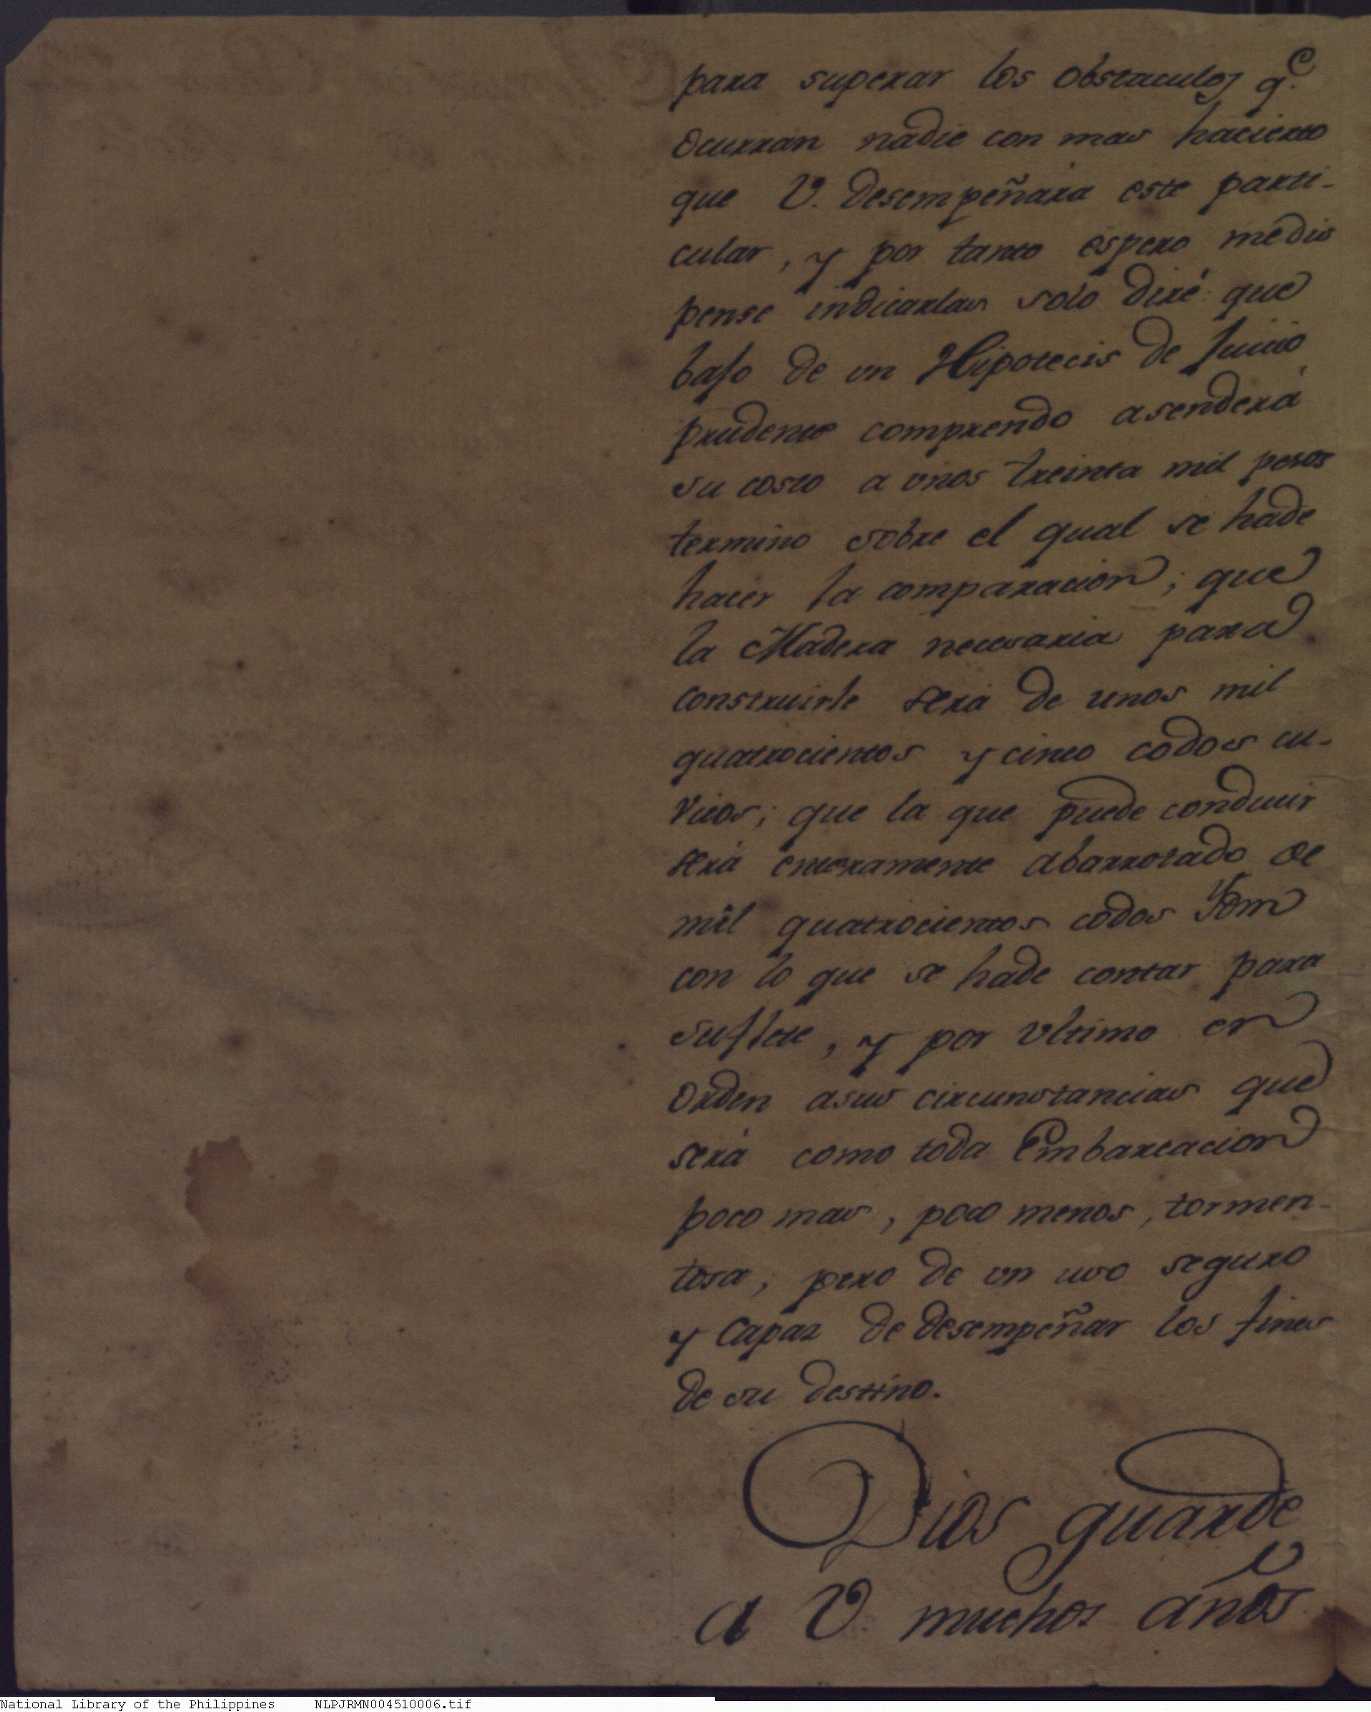 para superar los obstaculos q.e
ocurran nadie con mas hacierto
que V. desempeñara este parti-
cular, y por tanto espero medis
pense indicarlas solo diré que
bajo de un Hipotecis de Juicio
prudente comprendo asenderá
su costo a unos treinta mil pesos
termino sobre el qual se hade
hacer la comparacion; que
la Madera necesaria para
construirle será de unos mil
quatrocientos y cinco codos cu-
vicos; que la que puede conducir
será enteramente abarrotado de
mil quatrocientos codos Ydm
con lo que se hade contar para
suflete, y por ultimo en
orden asus circunstancias que
será como toda Embarcacion
poco mas, poco menos, tormen-
tosa, pero de un uso seguro
y Capaz de desempeñar los fines
de su destino.
Dios guarde
a V. muchos años
National Library of the Philippines NLPJRMN004510006.tif